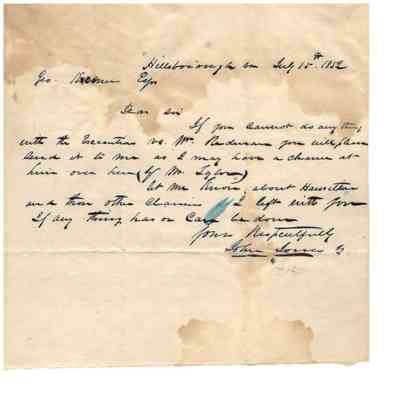 Hillsborough Va July 15th 1852
Geo. Esqr
Dear Sir
If you cannot do any thing
with the Execution vs. Wm. you will please
send it to me as I may have a chance at
him over here (by Mr. Tylor)
let me know about
and those other claims I left with you
If any thing has or can be done
Yours Respectfully
John Jones